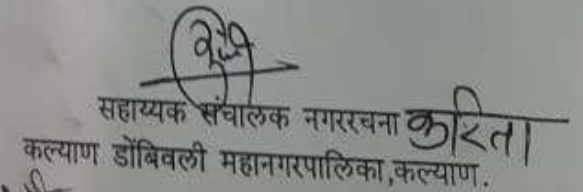 सहाय्यक संचालक नगररचना करिता
कल्याण डोंबिवली महानगरपालिका,कल्याण.